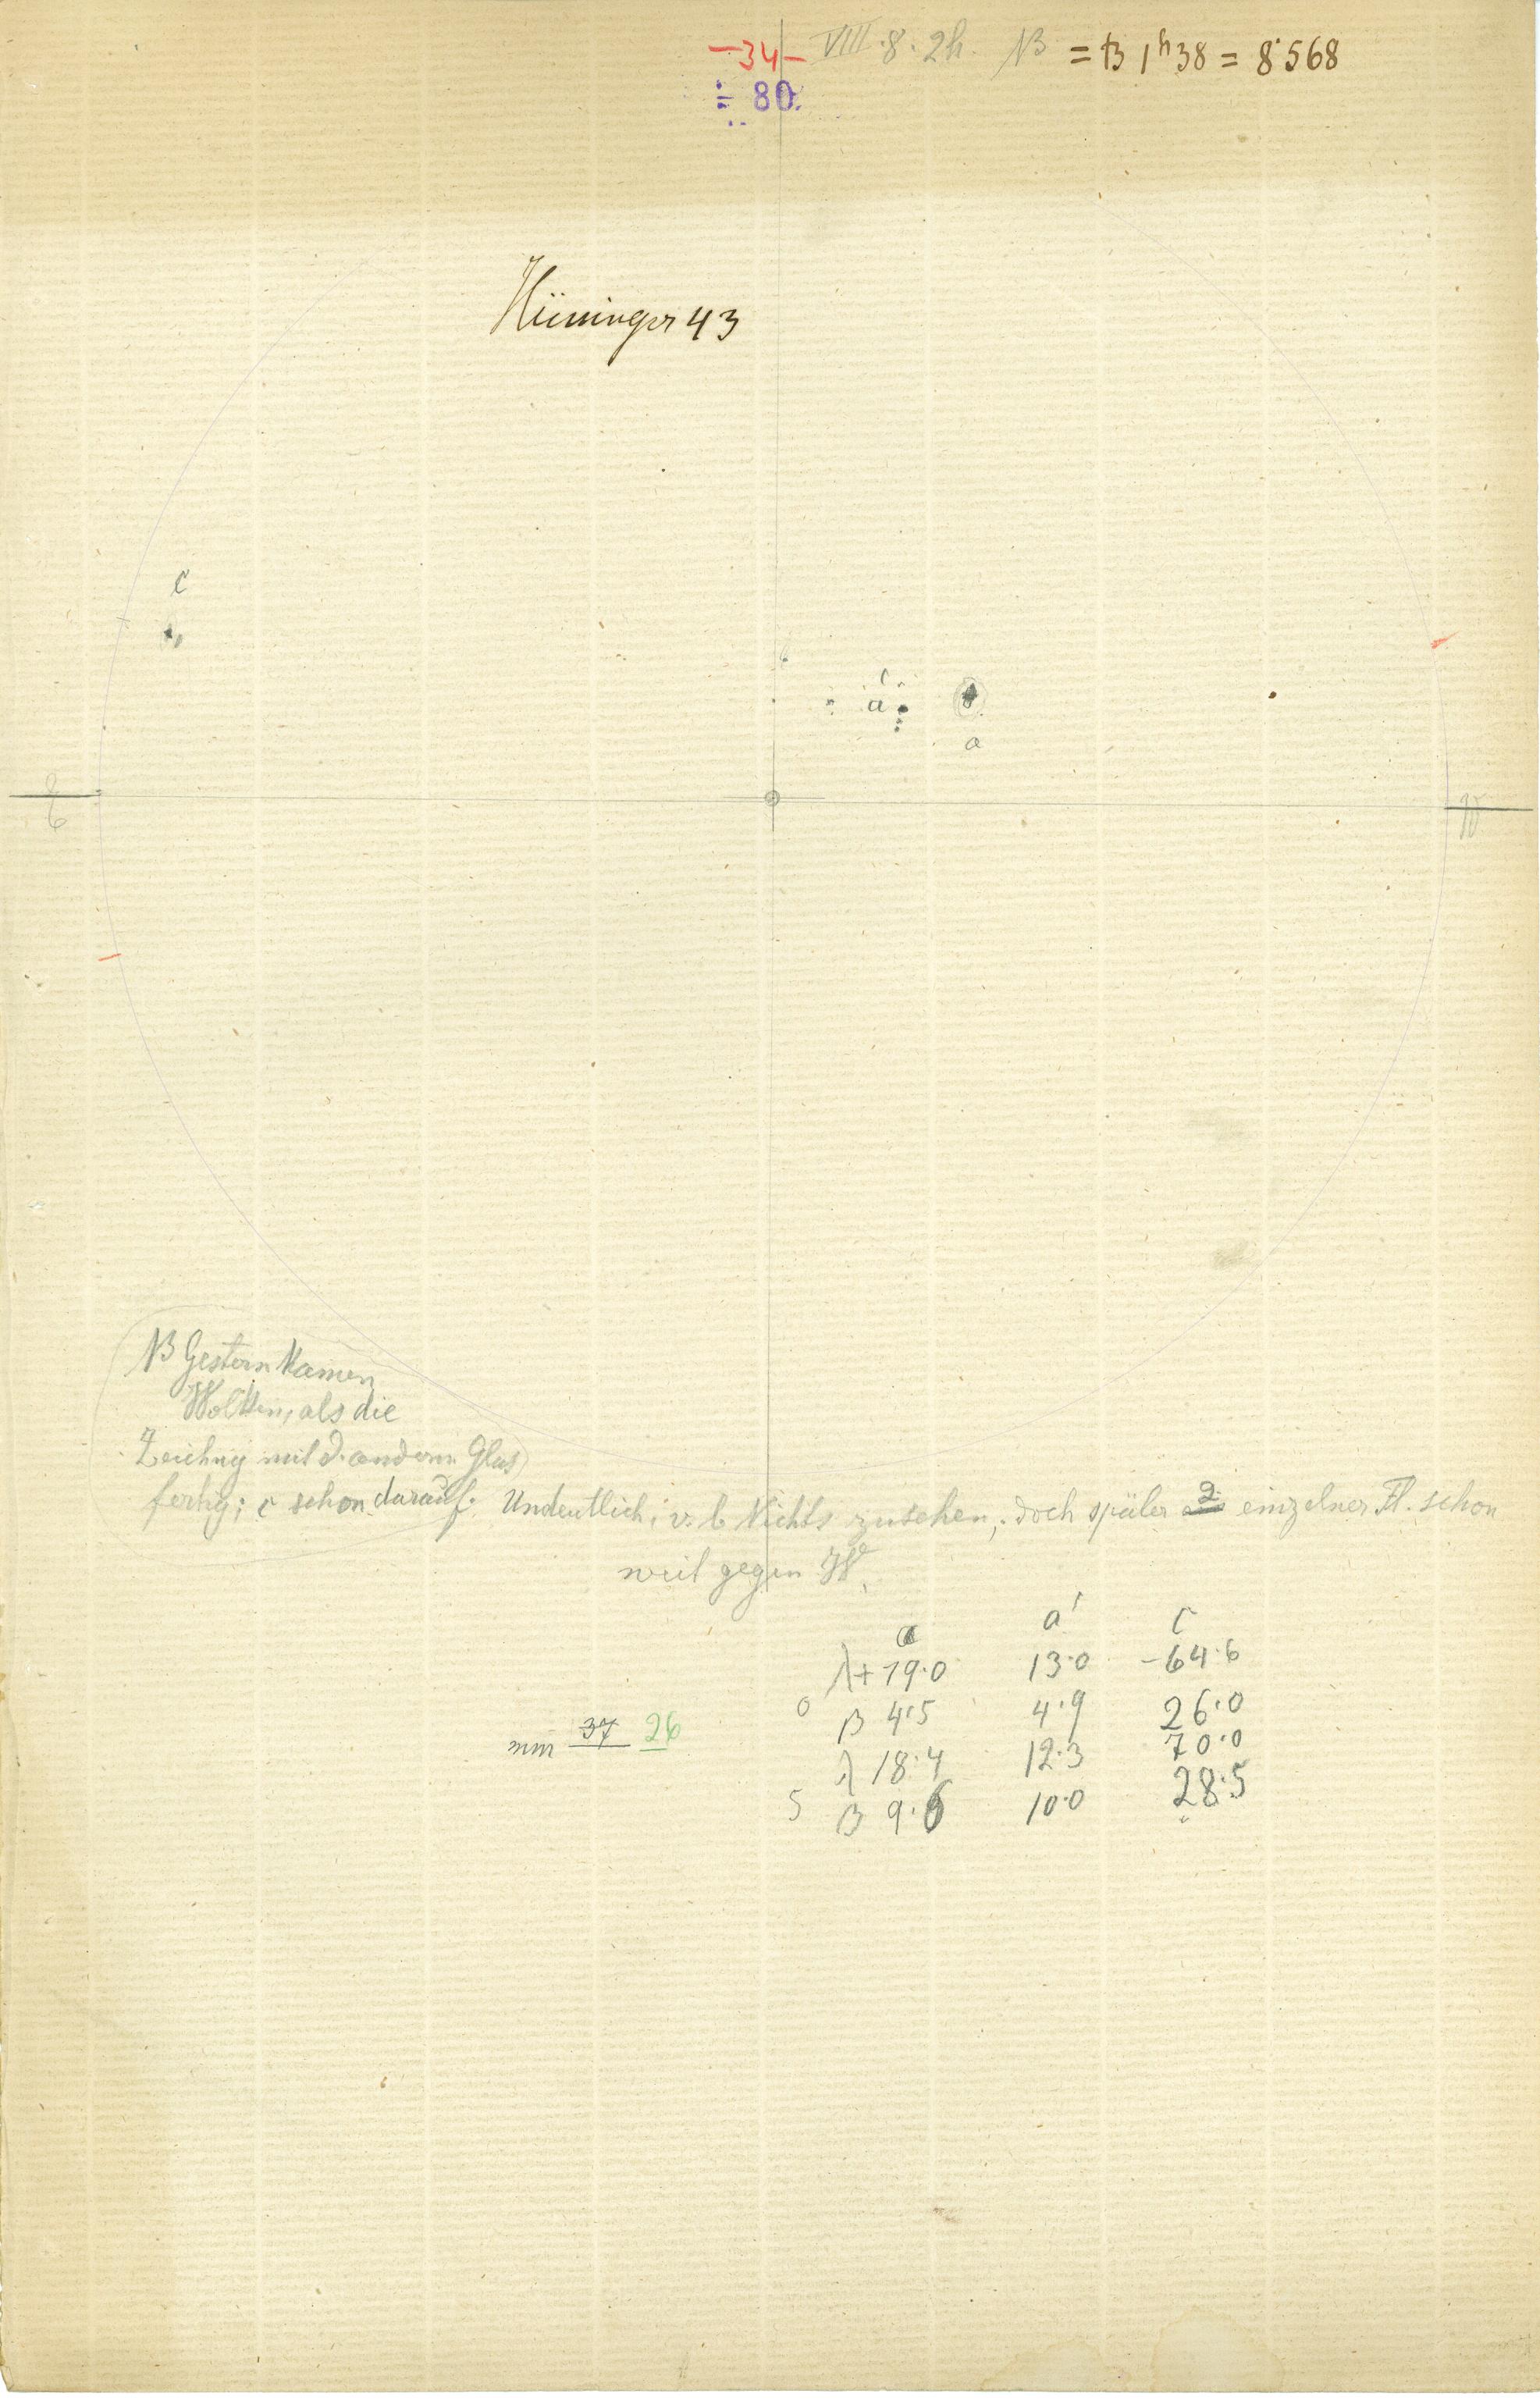 -34- VIII.8.2h. NB = B 1h38 = 8.568
80
43
c
a'
a
W
NB Gestern kamen
Wolken, als die
Zeichng mit d. andern Glas
fertig; c schon darauf. Undeutlich; v. b Nichts zu sehen, doch später einzelner Fl. schon
weit gegen W.
a a' c
λ+19.0 13.0 -64.6
0 β 4.5 4.9 26.0
mm 37 26
λ 18.4 12.3 70.0
5 β 9.6 10.0 28.5